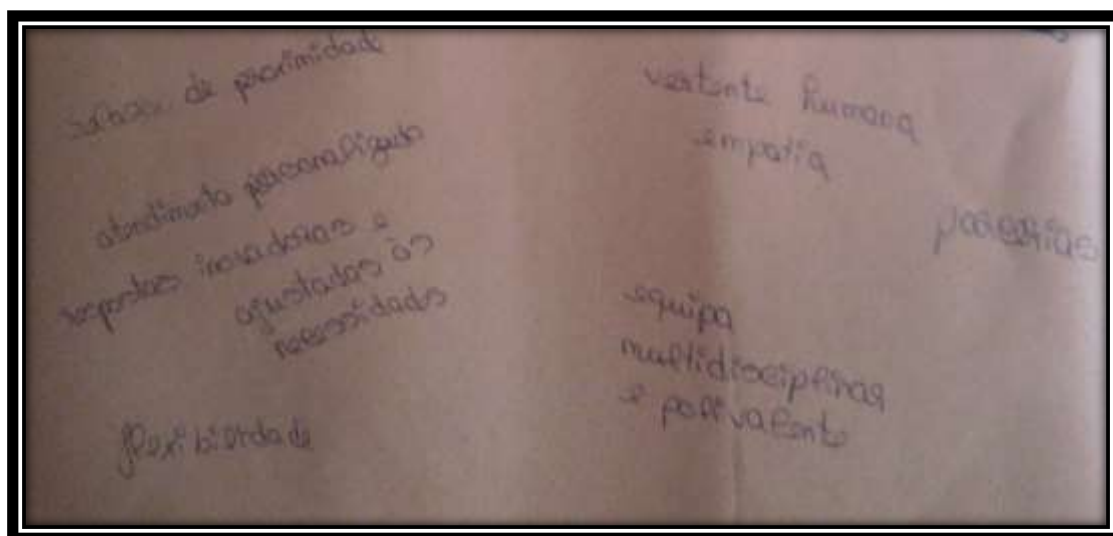 de proximidade
atendimento personalizado
respostas inovadoras e
ajustadas às
necessidades
flexibilidade
vertente humana
empatia
parcerias
equipa
multidisciplinar
e polivalente